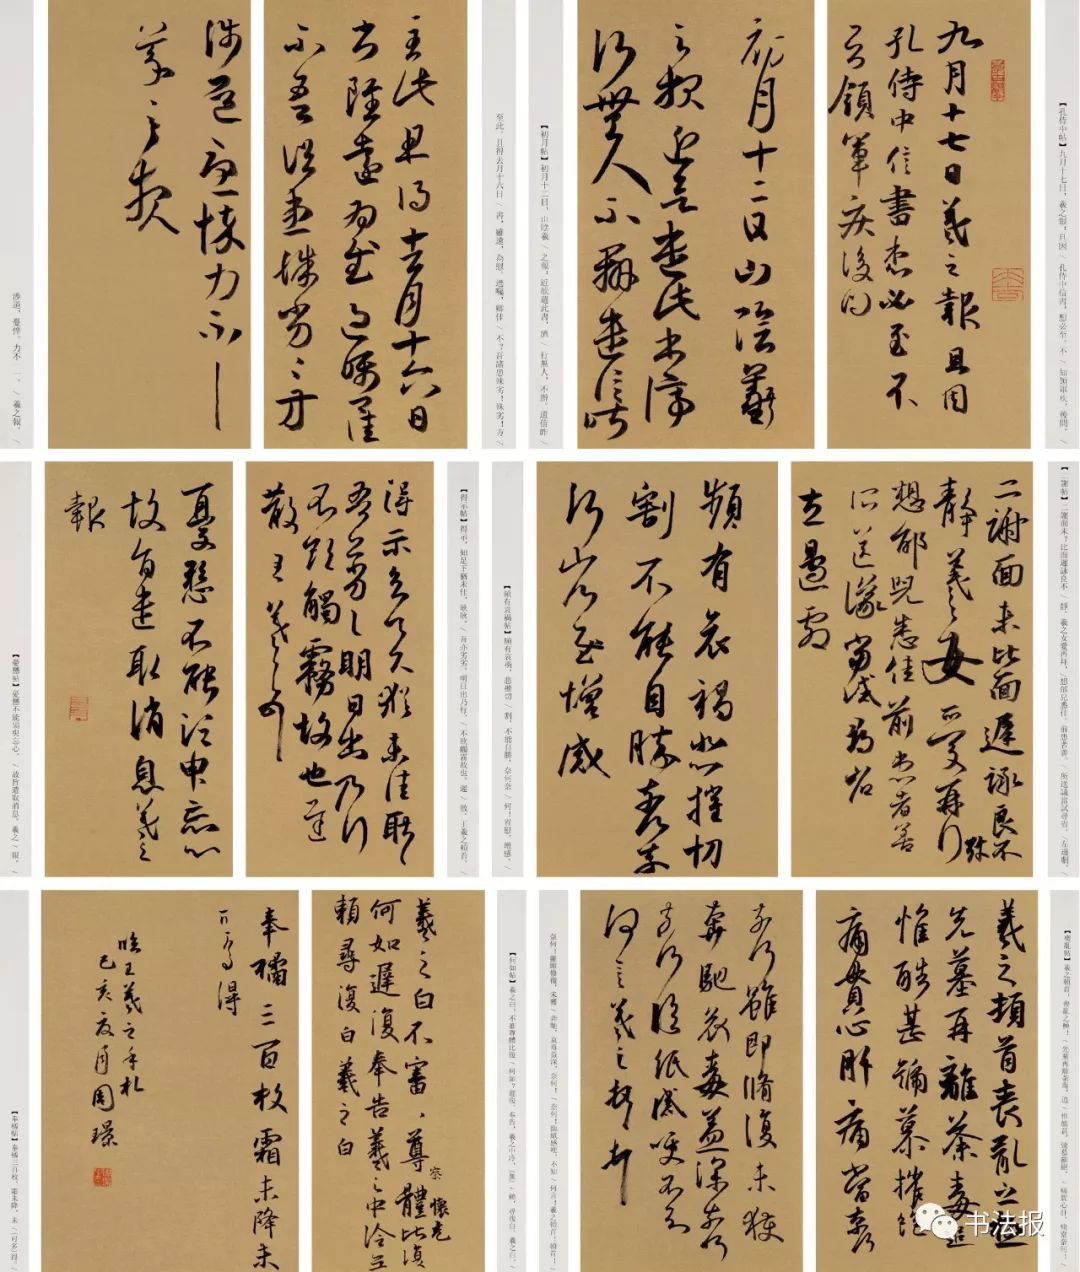 【孔侍中帖】九月十七日,羲之報,且因/孔侍中信書,想必至,不/知領軍疾,後問,
九月十七日羲之報且因
孔侍中信書想必至不
知領軍疾後問
初月十二日山陰羲
之報近欲遣此書濟
行無人不辦遣信昨
【初月帖】初月十二日,山陰羲/之報,近欲遣此書,濟/行無人,不辦,遣信昨/
至此,且得去月十六日/書,雖遠,為慰,過囑,卿佳/不?吾諸患殊劣!殊劣!方/
至此且得去月十六日
書雖遠為慰過囑卿佳
不吾諸患殊劣殊劣方
涉道憂悴力不一一
羲之報
涉道,憂悴,力不一一,/羲之報,
【二謝帖】二謝面未?比面遲詠良不/靜,羲之女愛再拜,/想邰兄悉佳,前患者善,/所送議當試尋省,/左邊劇,
二謝面未比面遲詠良不
靜羲之女愛再拜
想邰兄悉佳前患者善
所送議當試尋省
左邊劇
頻有哀禍悲摧切
割不能自勝奈何奈
何省慰增感
【頻有哀禍帖】頻有哀禍,悲摧切/割,不能自勝,奈何奈/何!省慰,增感,
【得示帖】得示,知足下猶未佳,耿耿,/吾亦劣劣,明日出乃行,/不欲觸霧故也,遲/散,王羲之頓首,
得示知足下猶未佳耿耿
吾亦劣劣明日出乃行
不欲觸霧故也遲
散王羲之頓首
憂懸不能須臾忘心
故旨遣取消息羲之
報
【憂懸帖】憂懸不能須臾忘心,/故旨遣取消息,羲之/報,
【喪亂帖】羲之頓首,喪亂之極!/先墓再離荼毒,追/惟酷甚,號慕摧絕,/痛貫心肝,痛當奈何!/
羲之頓首喪亂之極
先墓再離荼毒追
惟酷甚號慕摧絕
痛貫心肝痛當奈何
奈何雖即脩復未獲
奔馳哀毒益深奈何
奈何臨紙感哽不知
何言羲之頓首頓首
奈何!雖即修復,未獲/奔馳,哀毒益深,奈何!/奈何!臨紙感哽,不知/何言!羲之頓首!頓首!
【何如帖】羲之白,不審尊體比復/何如?遲復,奉告,羲之中冷,(無)/賴,尋復白,羲之白,
羲之白不審尊體比復
何如遲復奉告羲之中冷無
賴尋復白羲之白
奉橘三百枚霜未降未
可多得
臨王羲之手札
己亥夏月周璟
【奉橘帖】奉橘三百枚,霜未降,未/(可多)得,
书法报